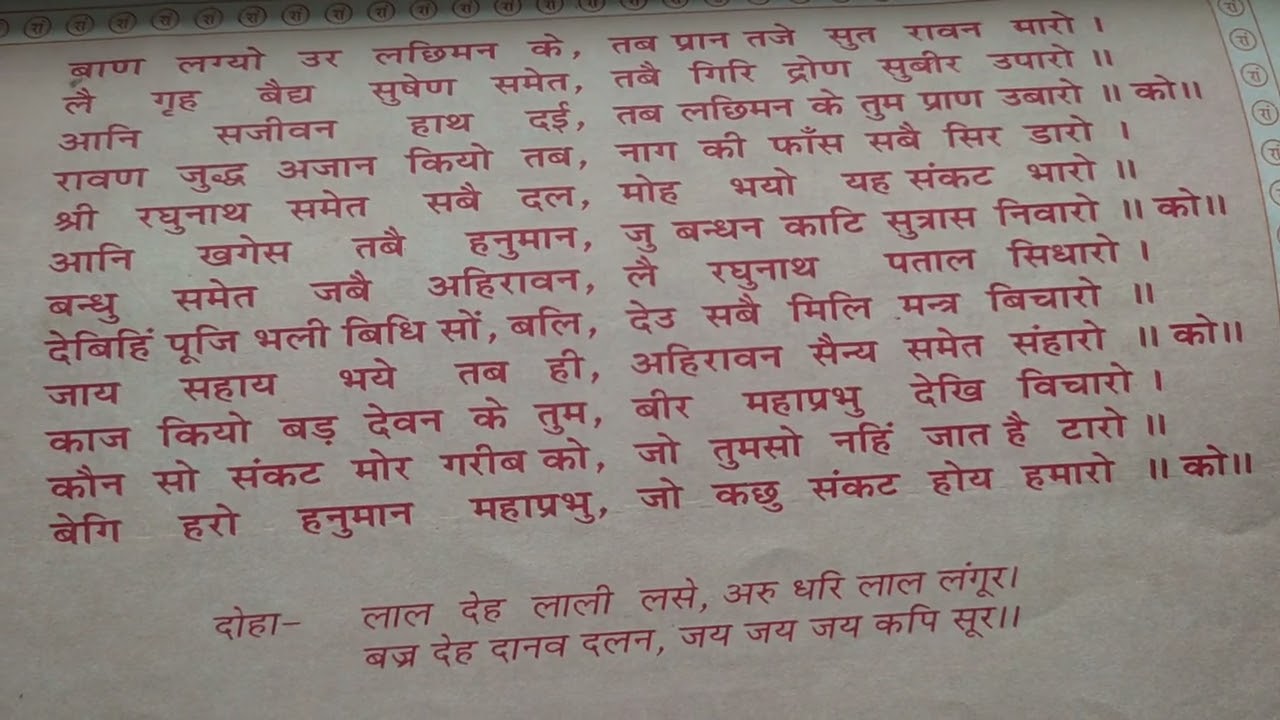 बाण लग्यो उर लछिमन के, तब प्रान तजे सुत रावन मारो ।
लै गृह बैद्य सुषेण समेत, तबै गिरि द्रोण सुबीर उपारो ॥
आनि सजीवन हाथ दई, तब लछिमन के तुम प्राण उबारो ॥ को॥
रावण जुद्ध अजान कियो तब, नाग की फाँस सबै सिर डारो ।
श्री रघुनाथ समेत सबै दल, मोह भयो यह संकट भारो ॥
आनि खगेस तबै हनुमान, जु बन्धन काटि सुत्रास निवारो ॥ को॥
बन्धु समेत जबै अहिरावन, लै रघुनाथ पताल सिधारो ।
देबिहिं पूजि भली बिधि सों, बलि, देउ सबै मिलि मन्त्र बिचारो ॥
जाय सहाय भये तब ही, अहिरावन सैन्य समेत संहारो ॥ को॥
काज कियो बड़ देवन के तुम, बीर महाप्रभु देखि विचारो ।
कौन सो संकट मोर गरीब को, जो तुमसो नहिं जात है टारो ॥
बेगि हरो हनुमान महाप्रभु, जो कछु संकट होय हमारो ॥ को॥
दोहा– लाल देह लाली लसे, अरु धरि लाल लंगूर।
बज्र देह दानव दलन, जय जय जय कपि सूर।।